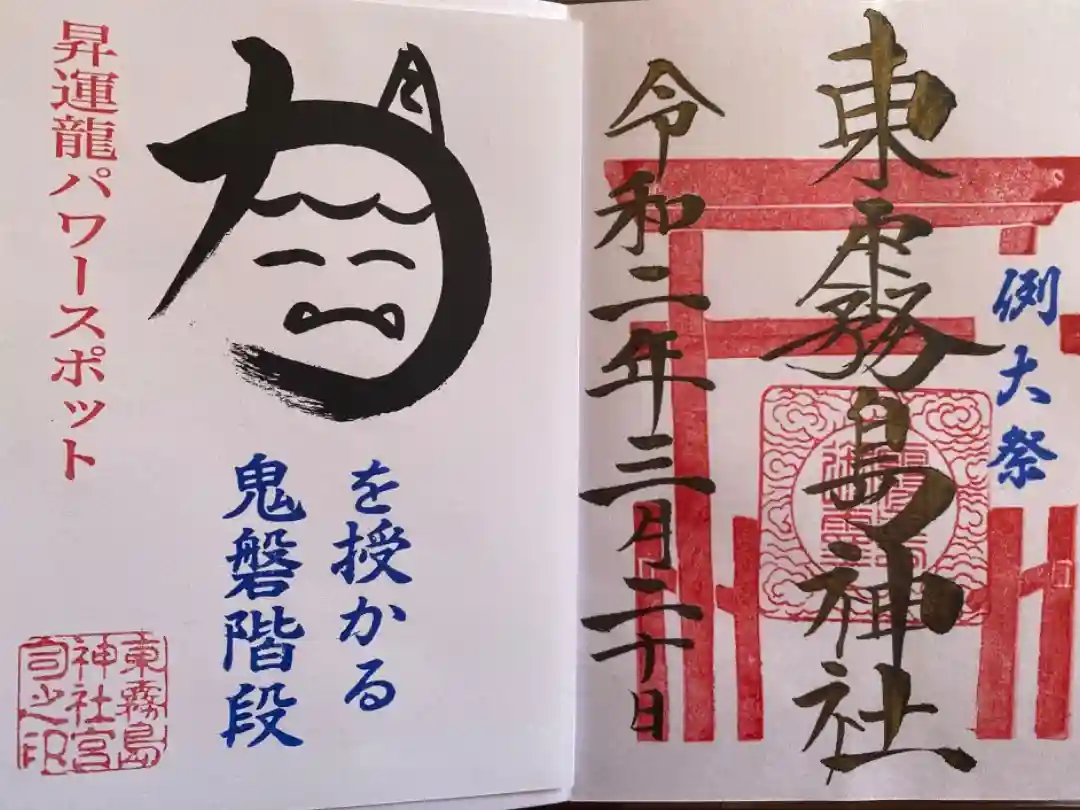 例大祭
東霧島神社
令和二年三月二十日
力
を授かる
鬼磐階段
昇運龍パワースポット
東霧島
神社宮
司之印